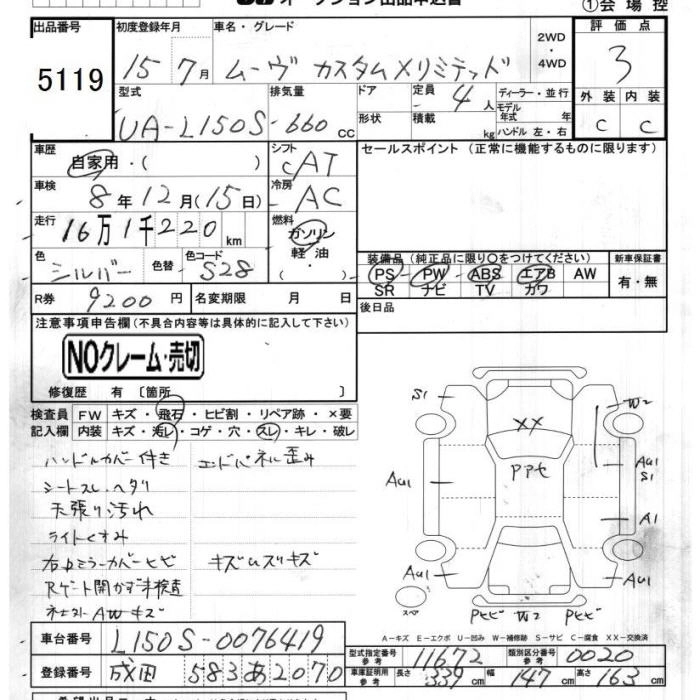 オークション出品申込書 ①会場控
出品番号 初度登録年月 車名・グレード 2WD・4WD 評価点
5119 15年 7月 ムーヴ カスタムXリミテッド 3
型式 排気量 ドア 定員 4人 ディーラー・並行 外装 内装
UA-L150S 660cc 形状 積載 kg モデル年式 年 ハンドル 左・右 C C
車歴 シフト セールスポイント (正常に機能するものに限ります)
自家用・( ) CAT
車検 8年12月(15日) 冷房 AC
走行 16万1千220km 燃料 ガソリン 軽油・( )
色 シルバー 色替 色コード S28
装備品(純正品に限り○をつけてください) 新車保証書
PS PW ABS エアB AW 有・無
SR ナビ TV カワ
R券 9200円 名変期限 月 日 後日品
注意事項申告欄(不具合内容等は具体的に記入して下さい)
NOクレーム・売切
修復歴 有 〔箇所 〕
検査員 FW キズ・飛石・ヒビ割・リペア跡・×要
記入欄 内装 キズ・汚レ・コゲ・穴・スレ・キレ・破レ
ハンドルカバー付き エンドパネル歪み
シートスレ、ヘタリ
天張り汚れ
ライトくすみ
右ドミラーカバーヒビ キズムズキズ
Rゲート開かず未検査
AWキズ
S1 W2
XX
PPセ
AU1 AU1 S1
A1
AU1 AU1
スペア
Pヒビ W2 Pヒビ
A-キズ E-エクボ U-凹み W-補修跡 S-サビ C-腐食 XX-交換済
車台番号 L150S-0076419
型式指定番号 参考 11672 類別区分番号 参考 0020
登録番号 成田 583 あ 2070
車庫証明用 参考 長さ 339cm 幅 147cm 高さ 163cm